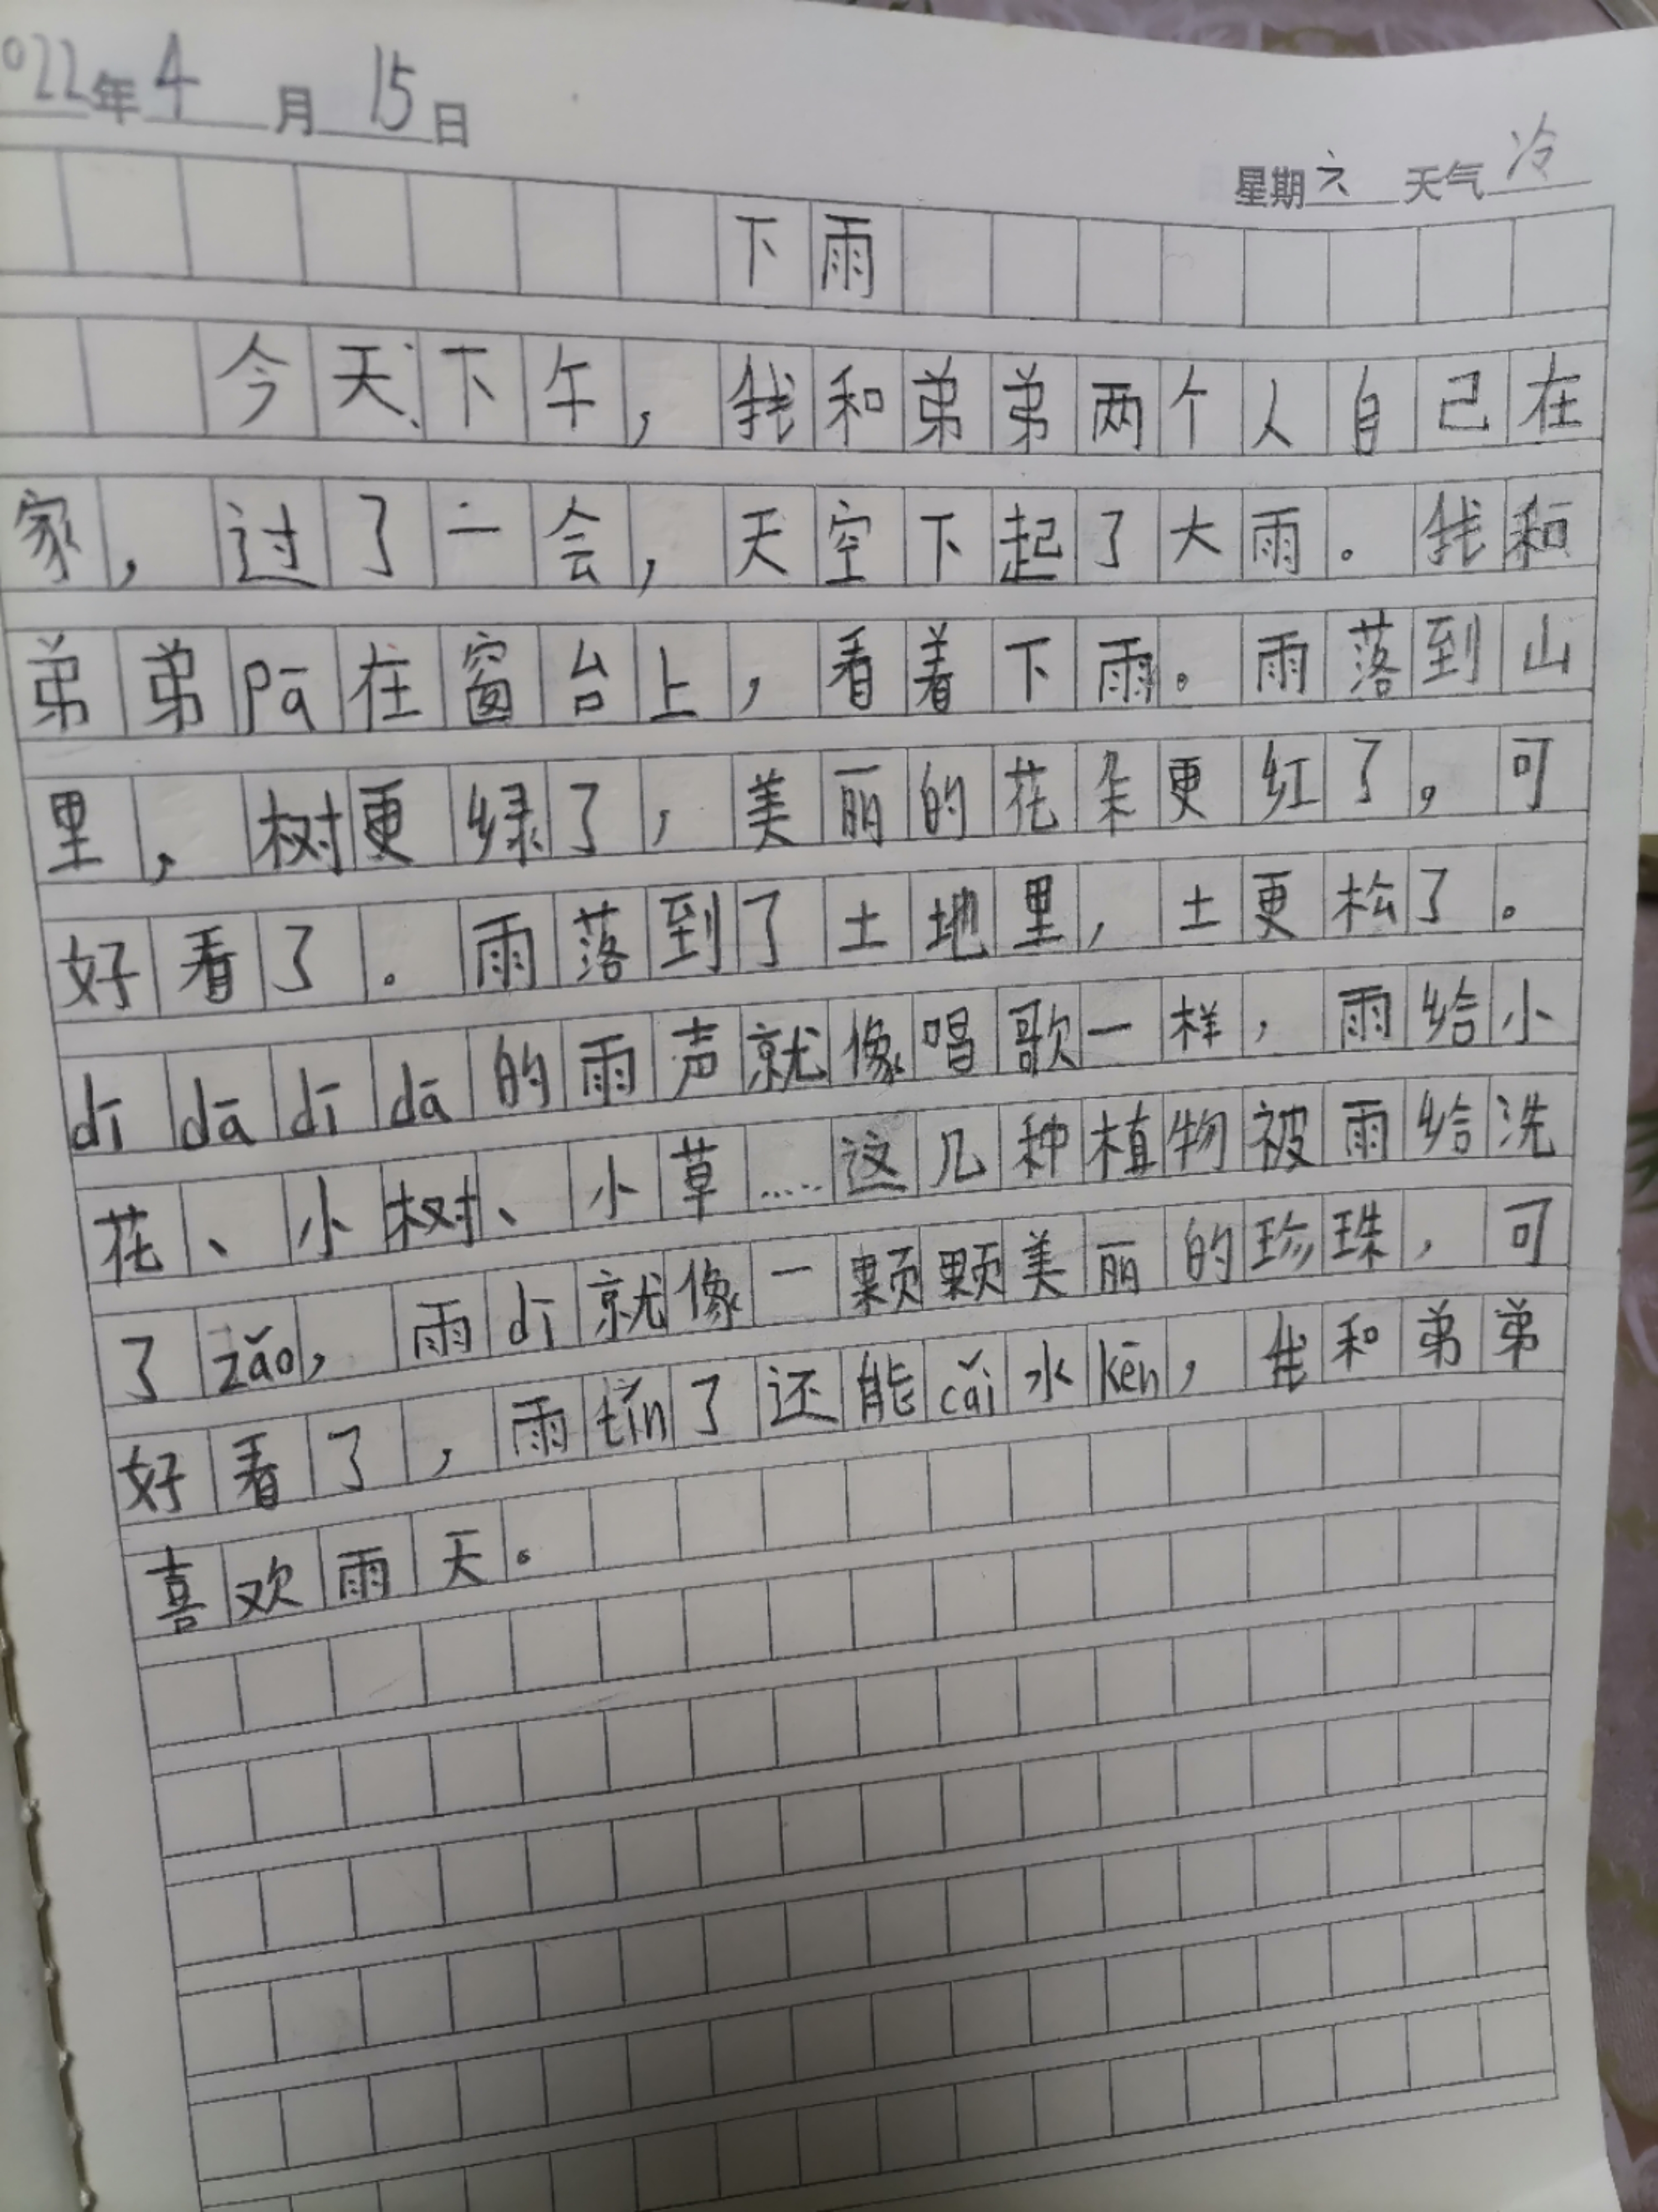 022年4月15日
星期六 天气冷
下雨
今天下午，我和弟弟两个人自己在
家，过了一会，天空下起了大雨。我和
弟弟pā在窗台上，看着下雨。雨落到山
里，树更绿了，美丽的花朵更红了。可
好看了。雨落到了土地里，土更松了。
dī dā dī dā的雨声就像唱歌一样，雨给小
花、小树、小草……这几种植物被雨给洗
了zǎo，雨dī就像一颗颗美丽的珍珠，可
好看了，雨tín了还能cǎi水kēn，我和弟弟
喜欢雨天。